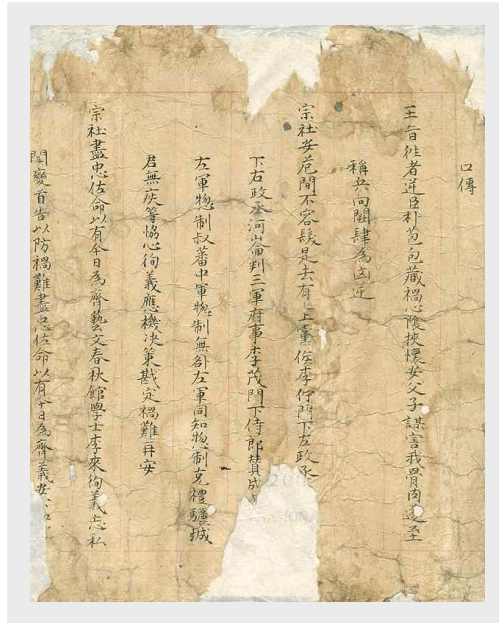 口傳
王旨徃者逆臣朴苞包藏禍心陰挾懷安父子謀害我骨肉遂至
稱兵向闕肆為凶逆
宗社安危間不容髮是去有上黨侯李佇門下左政丞
下右政丞河崙判三軍府事李茂門下侍郎賛成
左軍捴制叔蕃中軍捴制無咎左軍同知捴制克禮驪城
君無疾等恊心徇義應機決策戡定禍難再安
宗社盡忠佐命以有今日為齊藝文春秋館學士李來徇義忘私
聞變首告以防禍難盡忠佐命以有今日為齊義安